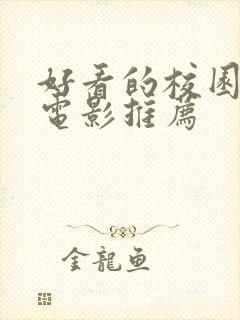 好看的校园
电影推薦
金龍鱼